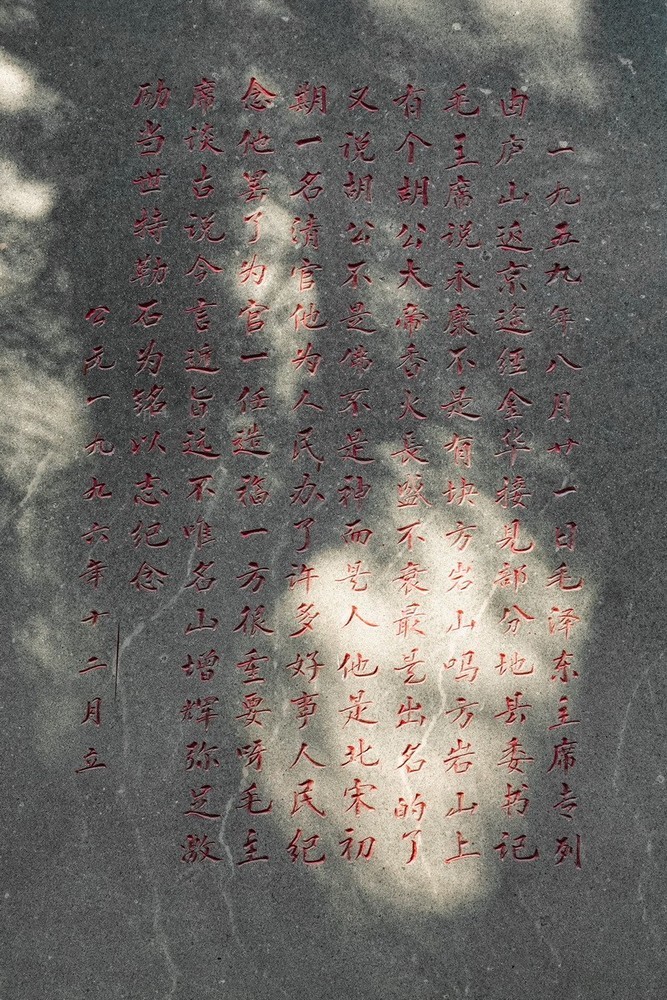 一九五九年八月廿一日毛泽东主席专列
由庐山返京途经金华接见部分地县委书记
毛主席说永康不是有块方岩山吗方岩山上
有个胡公大帝香火長盛不衰最是出名的了
又说胡公不是佛不是神而是人他是北宋初
期一名清官他为人民办了许多好事人民纪
念他罢了为官一任造福一方很重要呀毛主
席谈古说今言近旨远不唯名山增辉弥足激
励当世特勒石为铭以志纪念
公元一九九六年十二月立